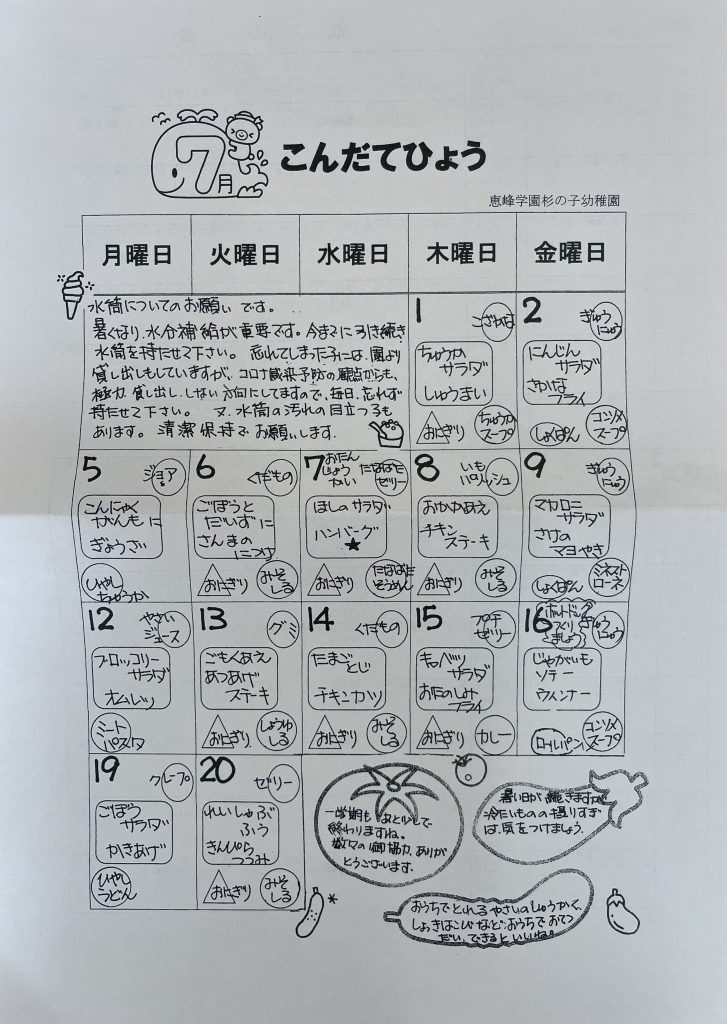 7月
こんだてひょう
恵峰学園杉の子幼稚園
月曜日 火曜日 水曜日 木曜日 金曜日
水筒についてのお願い です。
暑くなり、水分補給が重要です。今までに引き続き
水筒を持たせて下さい。 忘れてしまった子には、園より
貸し出しもしていますが、コロナ感染予防の観点からも、
極力 貸し出し、しない方向にしてますので、毎日、忘れず
持たせて下さい。 又、水筒の汚れの目立つ子も
あります。 清潔保持でお願いします。
1 こざかな
ちゅうか
サラダ
しゅうまい
おにぎり
ちゅうか
スープ
2 ぎゅう
にゅう
にんじん
サラダ
さわら
フライ
しょくぱん
コンソメ
スープ
5 ジョア
こんにゃく
がんもに
ぎょうざ
ひやし
ちゅうか
6 くだもの
ごぼうと
だいずに
さんまの
につけ
おにぎり
みそ
しる
7 おたん
じょう
かい
たなばた
ゼリー
ほしのサラダ
ハンバーグ
★
おにぎり
たなばた
そうめん
8 いも
パリッシュ
おかかあえ
チキン
ステーキ
おにぎり
みそ
しる
9 ぎゅう
にゅう
マカロニ
サラダ
さけの
マヨやき
しょくぱん
ミネスト
ローネ
12 やさい
ジュース
ブロッコリー
サラダ
オムレツ
ミート
パスタ
13 グミ
ごもくあえ
あつあげ
ステーキ
おにぎり
しょうゆ
しる
14 くだもの
たまご
とじ
チキンカツ
おにぎり
みそ
しる
15 プチ
ゼリー
キャベツ
サラダ
おたのしみ
フライ
おにぎり
カレー
16 ホットドッグ
つくり
ましょう
ぎゅう
にゅう
じゃがいも
ソテー
ウィンナー
ロールパン
コンソメ
スープ
19 クレープ
ごぼう
サラダ
かきあげ
ひやし
うどん
20 ゼリー
れいしゃぶ
ふう
きんぴら
つつみ
おにぎり
みそ
しる
一学期も あと少しで
終わりますね。
数々の御協力、ありが
とうございます。
暑い日が続きますが、
冷たいものの摂りすぎ
は、気をつけましょう。
おうちでとれるやさいのしゅうかく、
しょっきはこびなど、おうちでおてつ
だい、できるといいね。